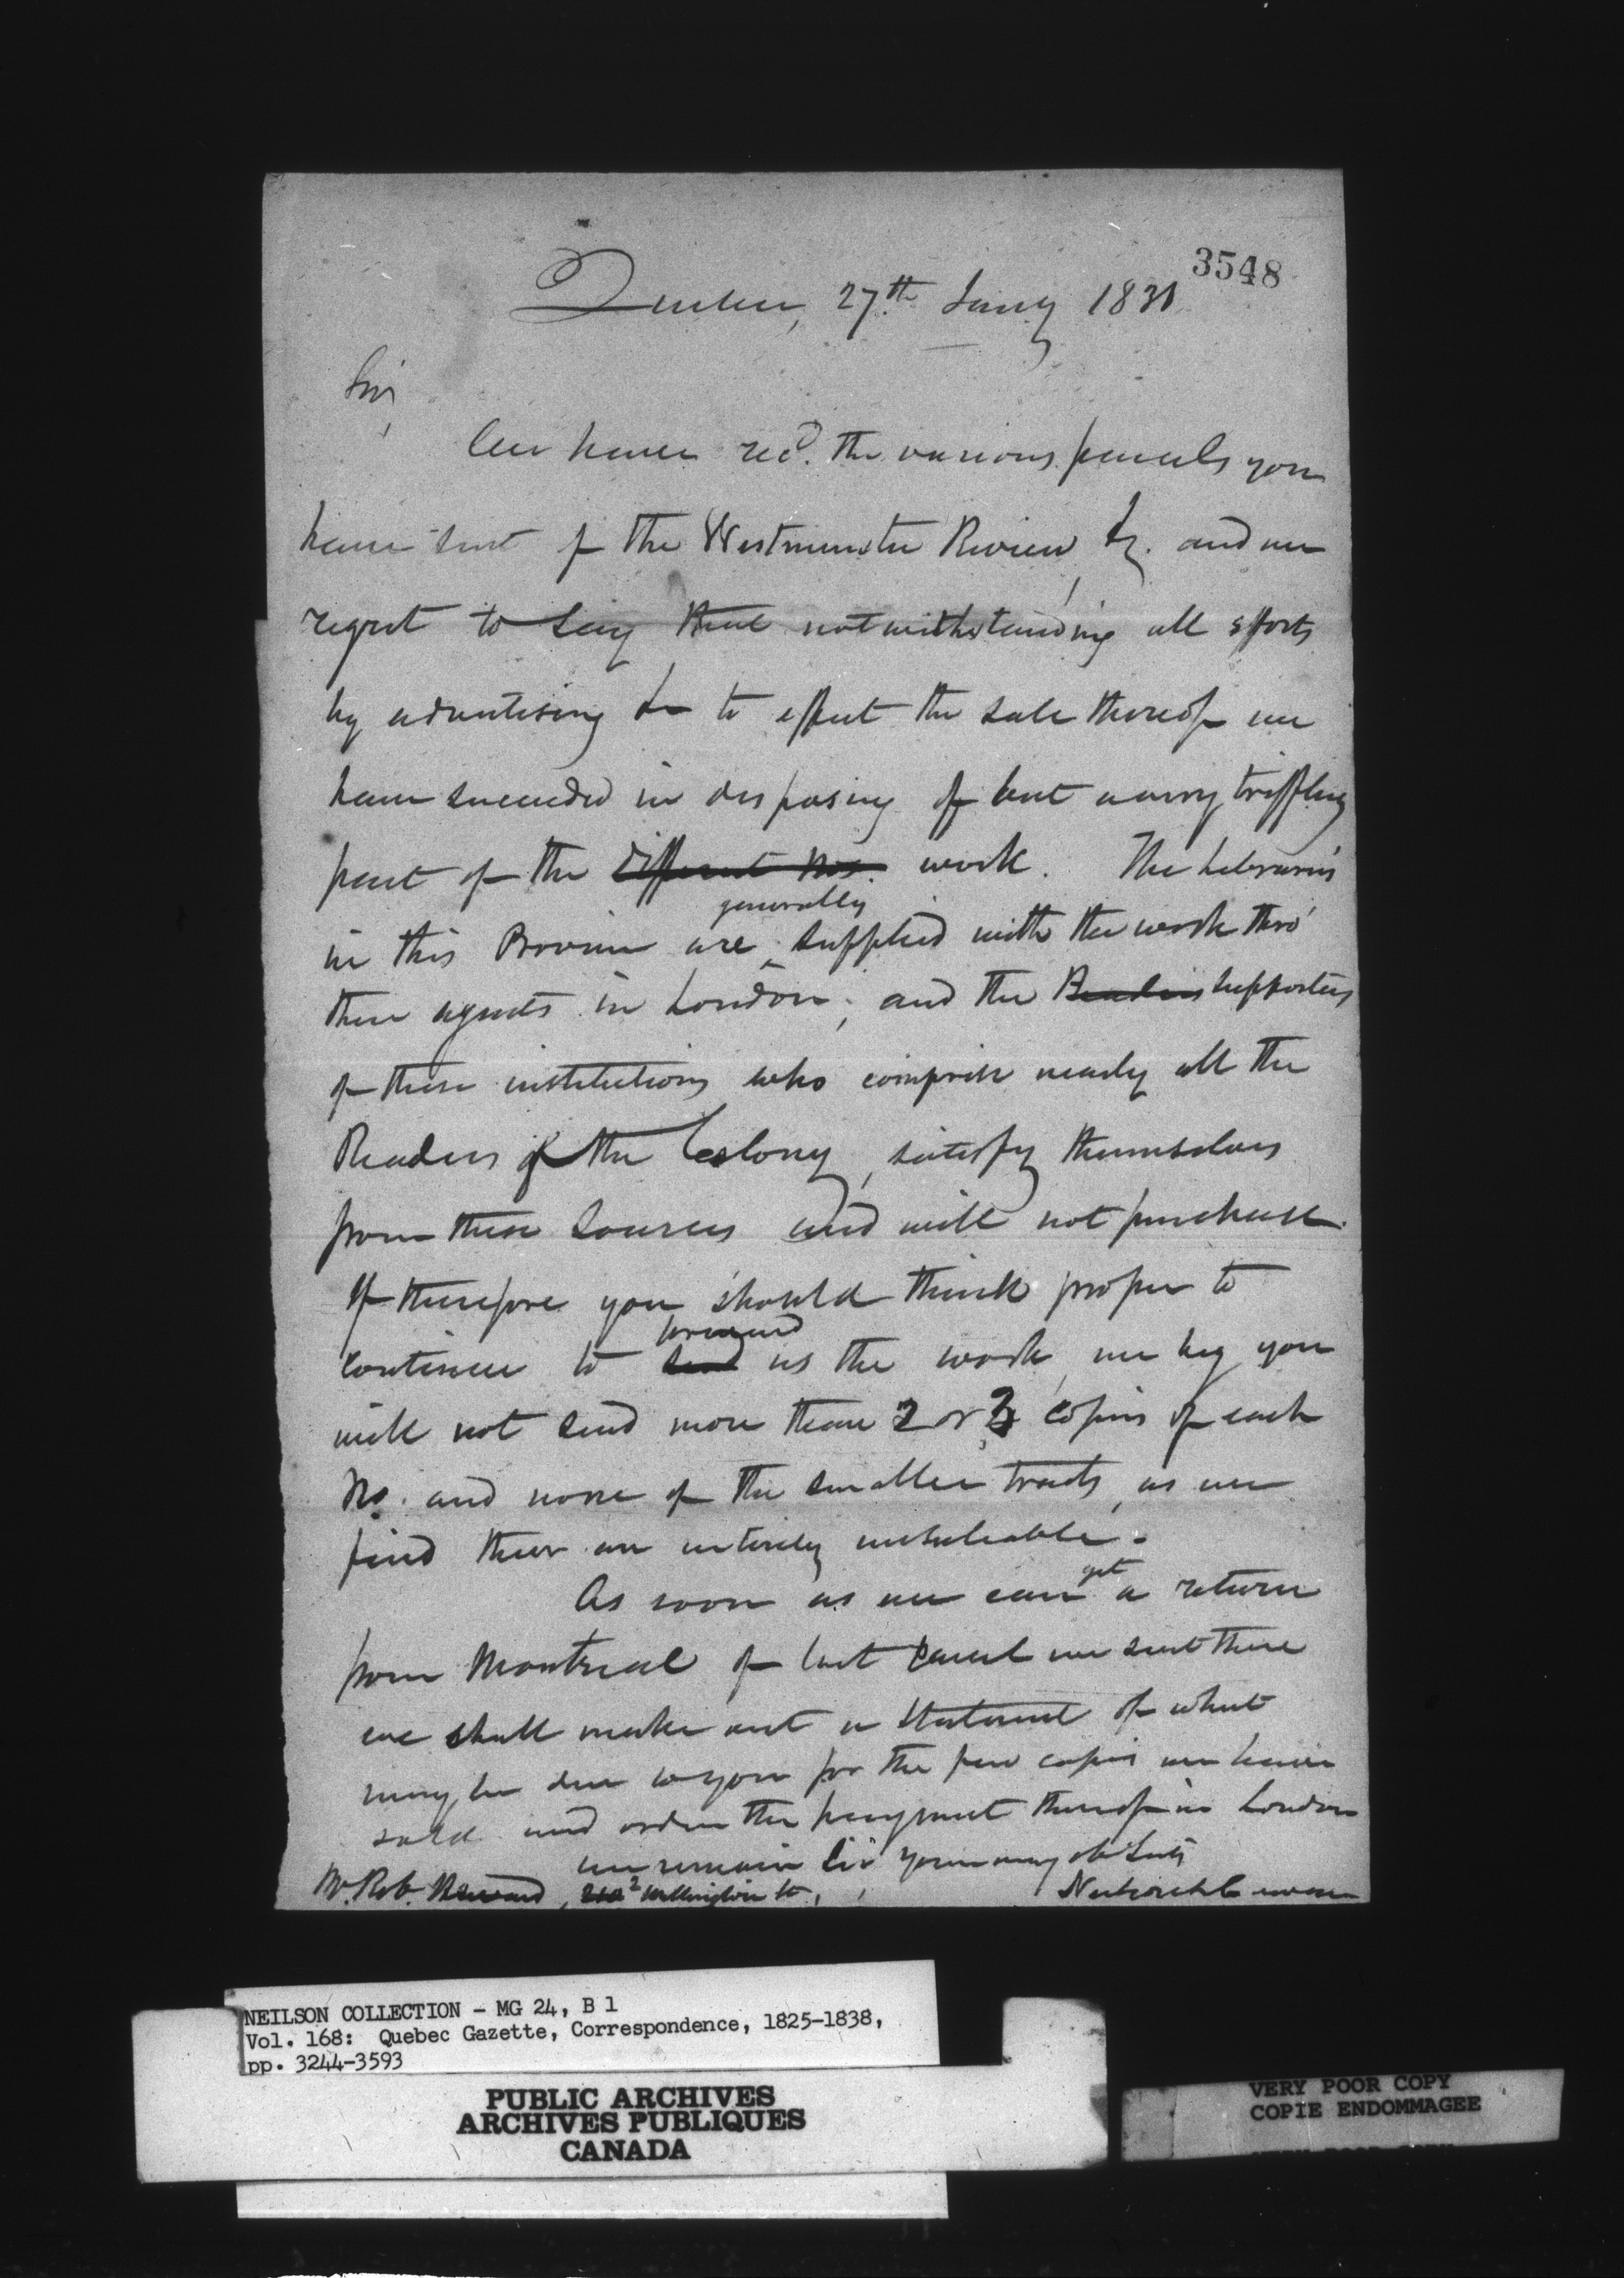 3548
Quebec, 27th Jany 1831
Sir,
We have recd. the various parcels you
have sent of the Westminster Review, &c. and we
regret to say that notwithstanding all efforts
by advertising &c to effect the sale thereof we
have succeeded in disposing of but a very triffling
part of the different Nos. work. The Libraries
generally
in this Province are supplied with the work thro'
their agents in London; and the Readers supporters
of these institutions who comprise nearly all the
Readers of the Colony, satisfy themselves
from these sources and will not purchase.
If therefore you should think proper to
forward
continue to send us the work, we beg you
will not send more than 2 or 3 copies of each
No. and none of the smaller tracts, as we
find them are entirely unsaleable.
get
As soon as we can a return
from Montreal of last parcel we sent there
we shall make out a Statement of what
may be due to you for the few copies we have
sold and order the payment thereof in London
we remain Sir your very ob Servts
Mr. Rob. Heward, 2 Wellington St.,
Neilson & Cowan
NEILSON COLLECTION - MG 24, B 1
Vol. 168: Quebec Gazette, Correspondence, 1825-1838,
pp. 3244-3593
PUBLIC ARCHIVES
ARCHIVES PUBLIQUES
CANADA
VERY POOR COPY
COPIE ENDOMMAGEE